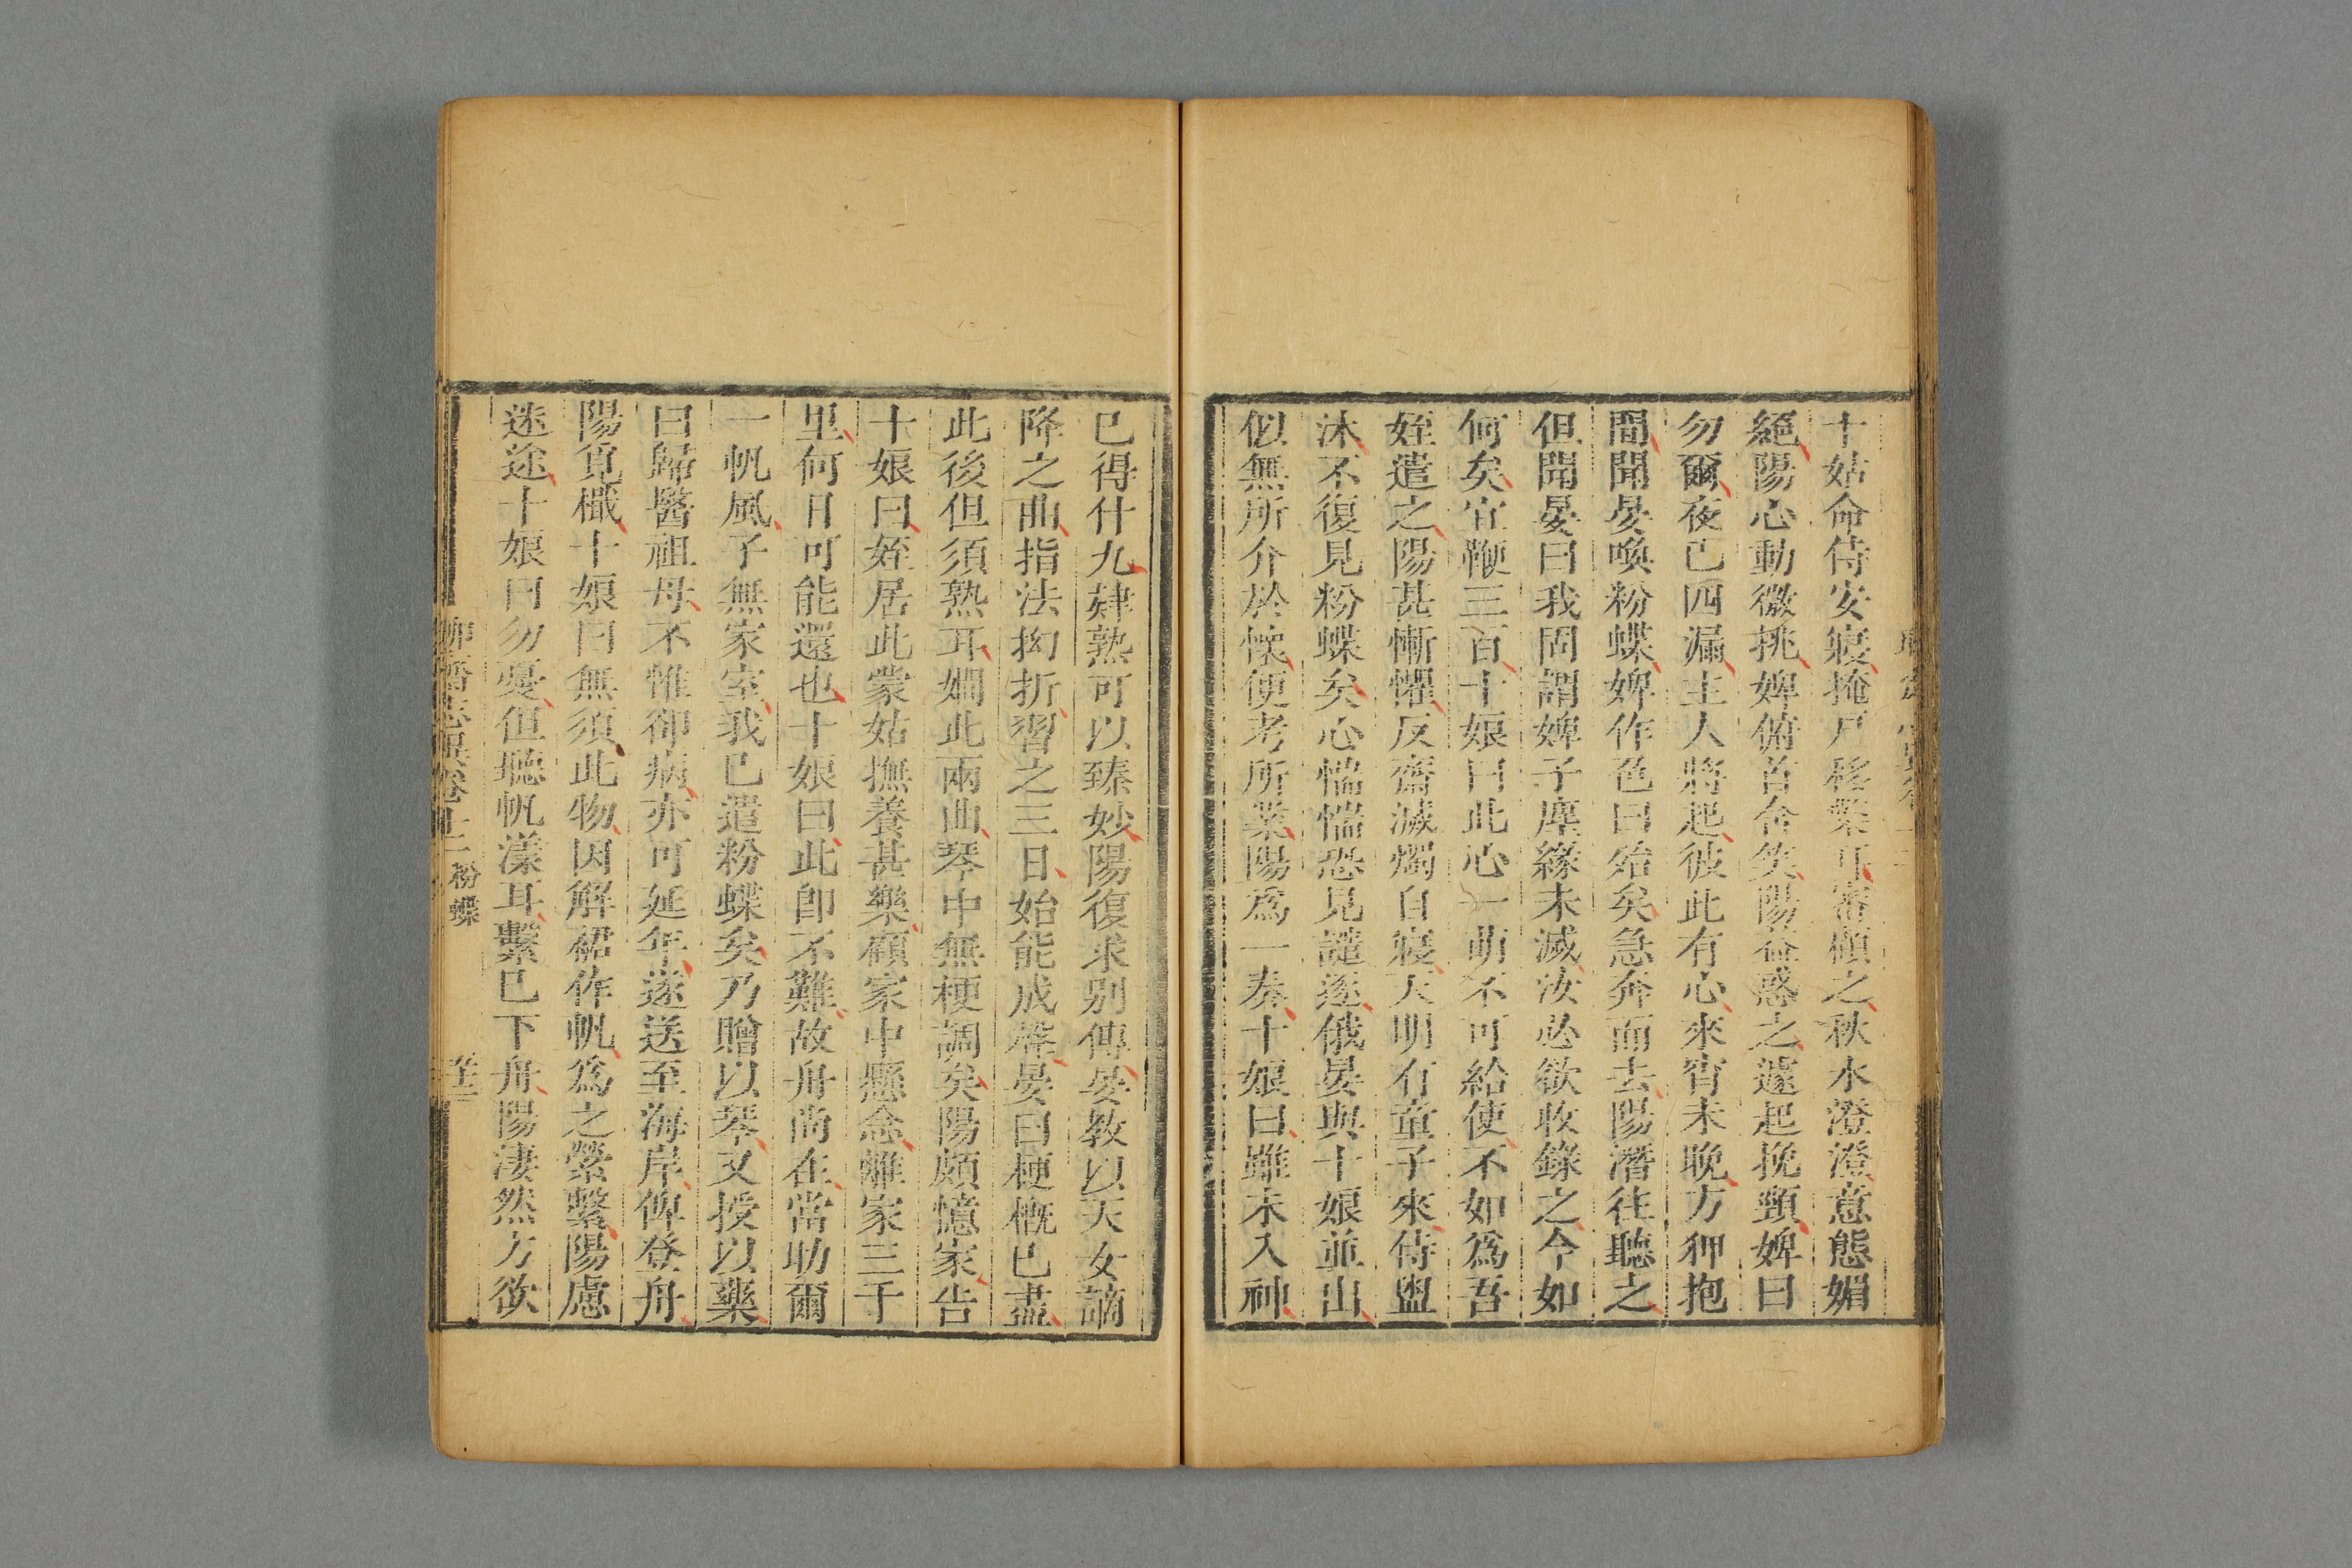 十姑命侍安寢掩戶移檠耳審顧之秋水澄澄意態媚
絕陽心動微挑婢俯首含笑陽益惑之遽起挽頸婢曰
勿爾夜已四漏主人將起彼此有心來宵未晚方狎抱
間聞晏喚粉蝶婢作色曰殆矣急奔而去陽潛往聽之
但聞晏曰我固謂婢子塵緣未滅汝必欲收錄之今如
何矣宜鞭三百十娘曰此心一萌不可給使不如為吾
姪遣之陽甚慚懼反齋滅燭自寢天明有童子來侍盥
沐不復見粉蝶矣心惴惴恐見譴逐俄晏與十娘並出
似無所介於懷便考所業陽為一奏十娘曰雖未入神
已得什九肄熟可以臻妙陽復求别傳晏教以天女謫
降之曲指法拗折習之三日始能成聲晏曰梗概已盡
此後但須熟耳嫺此兩曲琴中無梗調矣陽頗憶家告
十娘曰姪居此蒙姑撫養甚樂顧家中懸念離家三千
里何日可能還也十娘曰此卽不難故舟尚在當助爾
一帆風子無家室我已遣粉蝶矣乃贈以琴又授以藥
曰歸醫祖母不惟卻病亦可延年遂送至海岸俾登舟
陽覓檝十娘曰無須此物因解裙作帆為之縈繫陽慮
迷途十娘曰勿憂但聽帆漾耳繫已下舟陽淒然方欲
聊齋志異卷十二 粉蝶